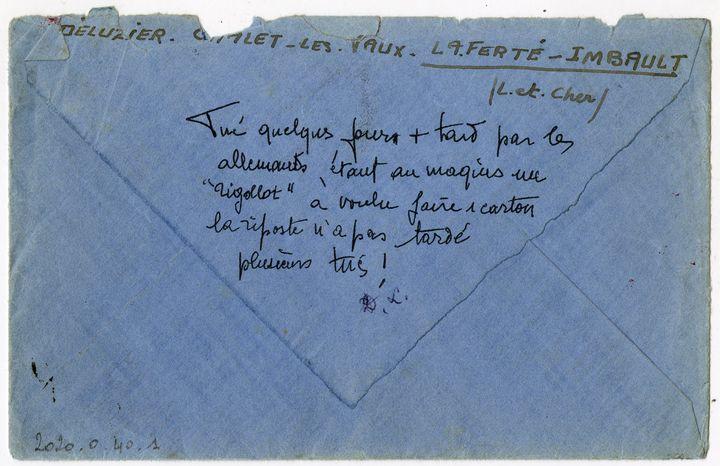 DÉLUZIER. CHALET-LES-VAUX. LA.FERTÉ-IMBAULT
/L.et.Cher/
Tué quelques jours + tard par les
allemands étant au maquis un
"rigollot" à voulu faire 1 carton
la riposte n'a pas tardé
plusieurs tués !
D.L.
2020.0.40.1